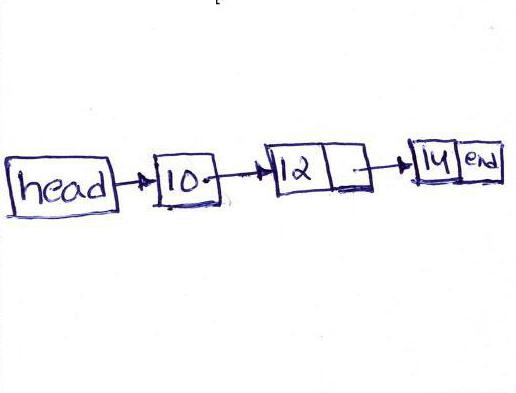 head 10 12 14 end